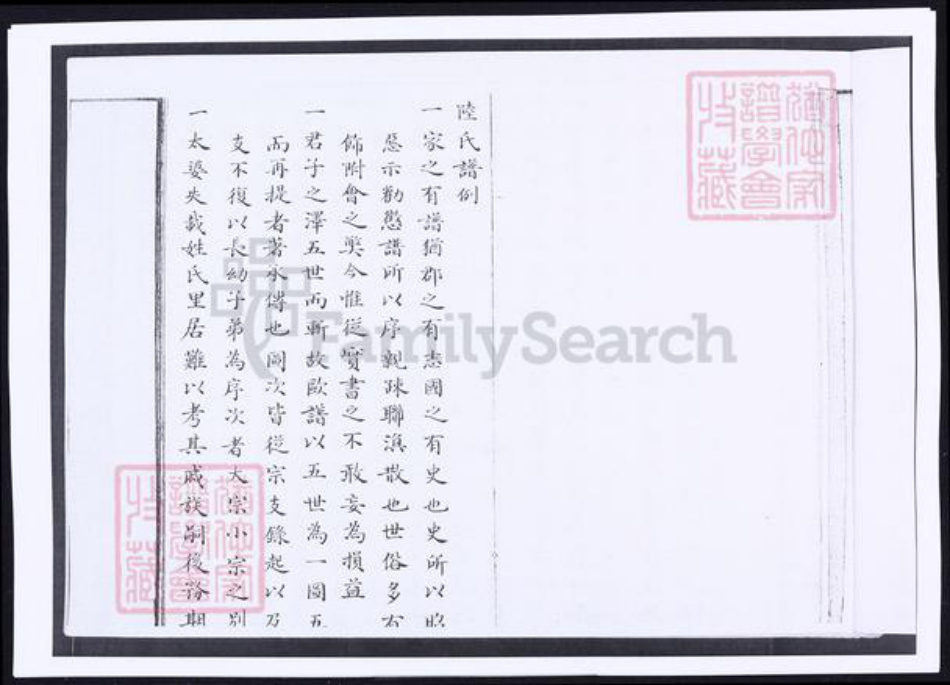 陸氏譜例
一家之有譜猶郡之有志國之有史也史所以昭
惡示勸懲譜所以序親疎聯渙散也世俗多有
飾附會之獘今惟從實書之不敢妄為損益
一君子之澤五世而斬故歐譜以五世為一圖五
而再提者著承傳也圖次皆從宗支錄起以及
支不復以長幼子弟為序次者大宗小宗之別
一太婆失載姓氏里居難以考其戚族嗣後務期
FamilySearch
譜學會
收藏
譜學會
收藏